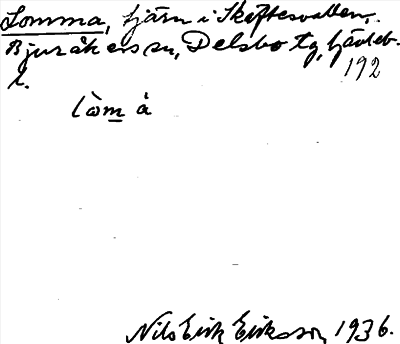 Lomma, tjärn i Skeftesvallen,
Bjuråkers sn, Delsbo tg, Gävleb.
l.
192
lòm̲ à
Nils Erik Eriksson, 1936.